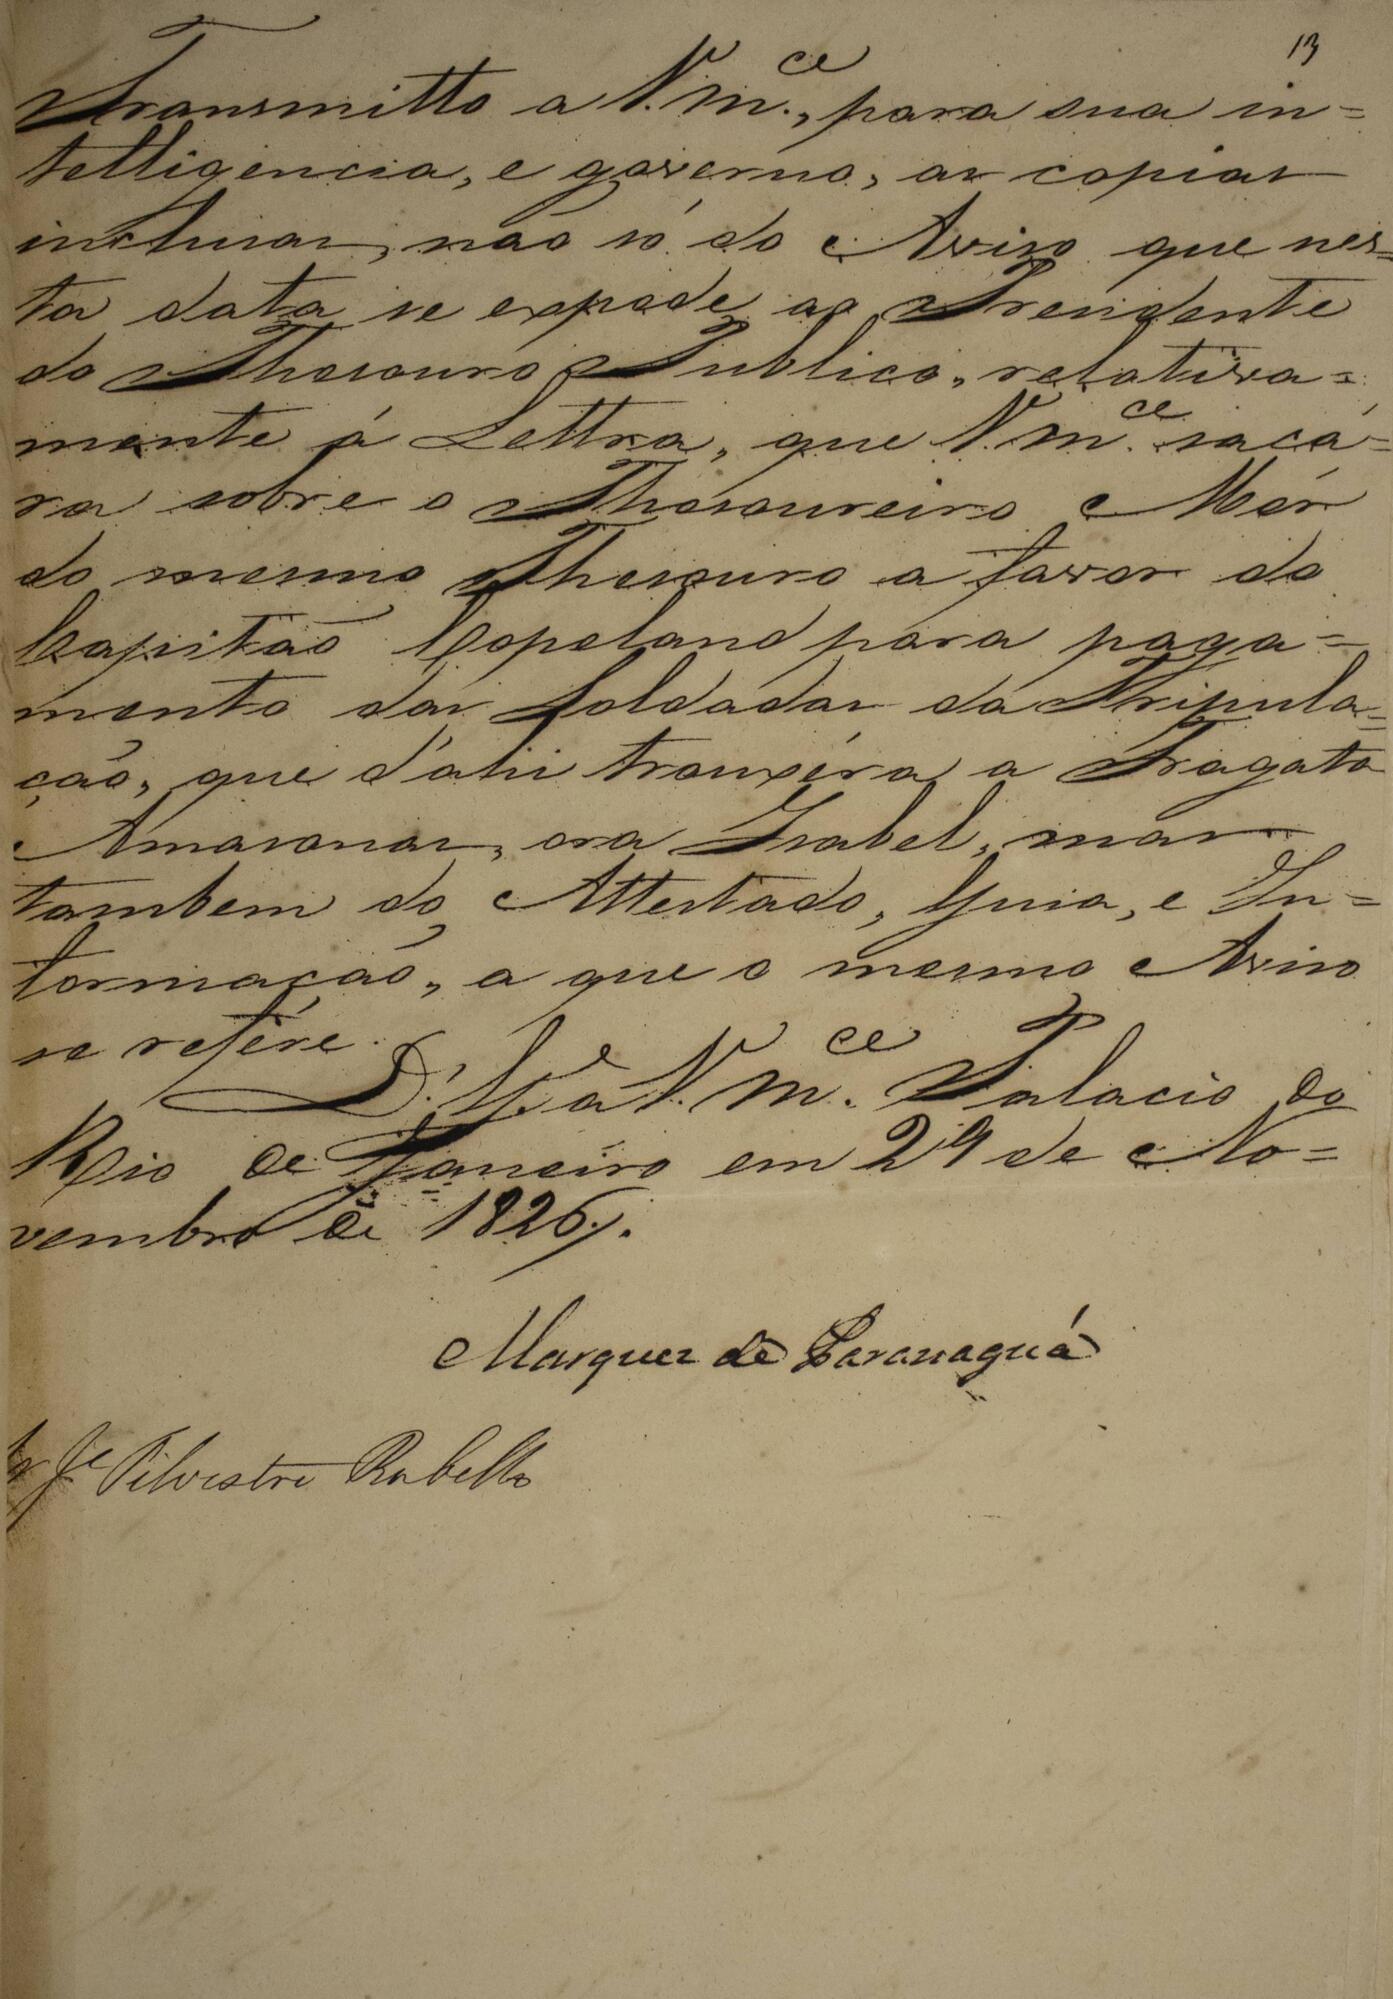 13
Transmitto a V. m.ce, para sua in=
telligencia, e governo, as copias
inclusas, não só do Aviso que nes=
ta data se expede ao Presidente
do Thesouro Publico, relativa=
mente á Lettra, que V. m.ce sacá=
ra sobre o Thesoureiro Mór
do mesmo Thesouro a favor do
Capitão Copeland para paga=
mento das Soldadas da Tripula=
ção, que d'ahi trouxéra a Fragata
Amasonas, ora Isabel, mas
tambem do Attestado, Guia, e In=
formação, a que o mesmo Aviso
se refére.
D.s G.e a V. m.ce Palacio do
Rio de Janeiro em 29 de No=
vembro de 1826.
Marquez de Paranaguá
Je Silvestre Rebello